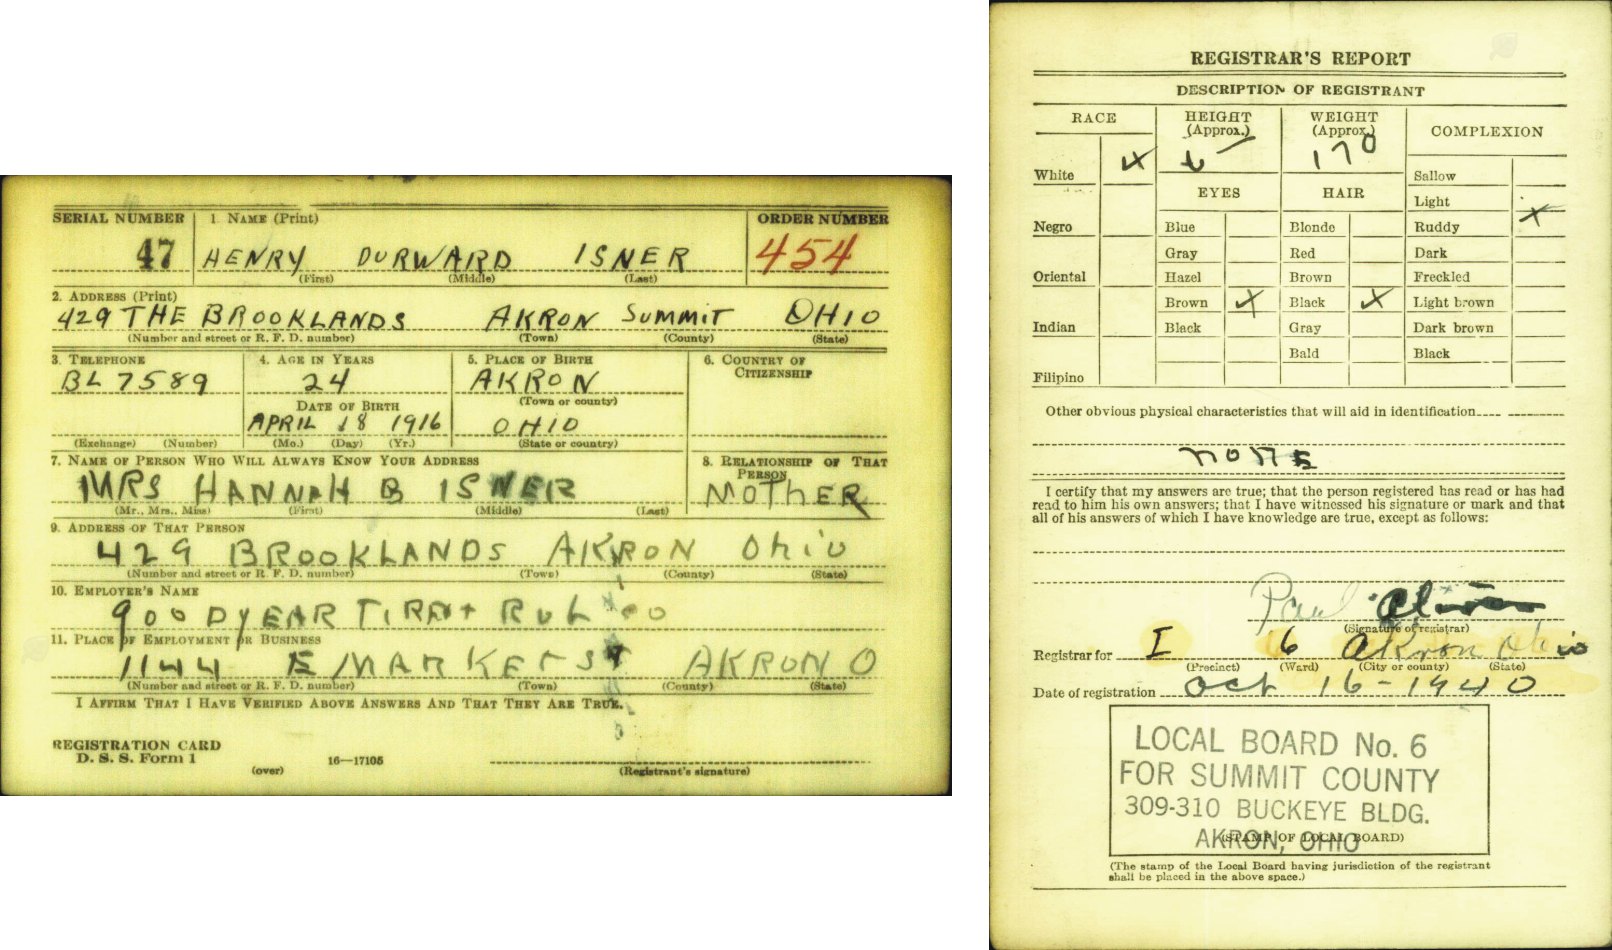 SERIAL NUMBER 1. NAME (Print) ORDER NUMBER
47 HENRY DURWARD ISNER 454
(First) (Middle) (Last)
2. ADDRESS (Print)
429 THE BROOKLANDS AKRON SUMMIT OHIO
(Number and street or R. F. D. number) (Town) (County) (State)
3. TELEPHONE 4. AGE IN YEARS 5. PLACE OF BIRTH 6. COUNTRY OF
CITIZENSHIP
BL 7589 24 AKRON
(Town or county)
DATE OF BIRTH
APRIL 18 1916 OHIO
(Exchange) (Number) (Mo.) (Day) (Yr.) (State or country)
7. NAME OF PERSON WHO WILL ALWAYS KNOW YOUR ADDRESS 8. RELATIONSHIP OF THAT
PERSON
MRS HANNAH B ISNER MOTHER
(Mr., Mrs., Miss) (First) (Middle) (Last)
9. ADDRESS OF THAT PERSON
429 BROOKLANDS AKRON Ohio
(Number and street or R. F. D. number) (Town) (County) (State)
10. EMPLOYER'S NAME
900DYEAR TIRE + RUB CO
11. PLACE OF EMPLOYMENT OR BUSINESS
1144 E MARKET ST AKRON O
(Number and street or R. F. D. number) (Town) (County) (State)
I AFFIRM THAT I HAVE VERIFIED ABOVE ANSWERS AND THAT THEY ARE TRUE.
REGISTRATION CARD
D. S. S. Form 1
(over) 16—17105 (Registrant's signature)
REGISTRAR'S REPORT
DESCRIPTION OF REGISTRANT
RACE HEIGHT (Approx.) WEIGHT (Approx.) COMPLEXION
6 170
White x Sallow
EYES HAIR Light
Negro Blue Blonde Ruddy x
Gray Red Dark
Oriental Hazel Brown Freckled
Brown x Black x Light brown
Indian Black Gray Dark brown
Bald Black
Filipino
Other obvious physical characteristics that will aid in identification
NONE
I certify that my answers are true; that the person registered has read or has had
read to him his own answers; that I have witnessed his signature or mark and that
all of his answers of which I have knowledge are true, except as follows:
Paul
(Signature of registrar)
Registrar for I 6 Akron Ohio
(Precinct) (Ward) (City or county) (State)
Date of registration Oct 16-1940
LOCAL BOARD No. 6
FOR SUMMIT COUNTY
309-310 BUCKEYE BLDG.
AKRON, OHIO
(STAMP OF LOCAL BOARD)
(The stamp of the Local Board having jurisdiction of the registrant
shall be placed in the above space.)